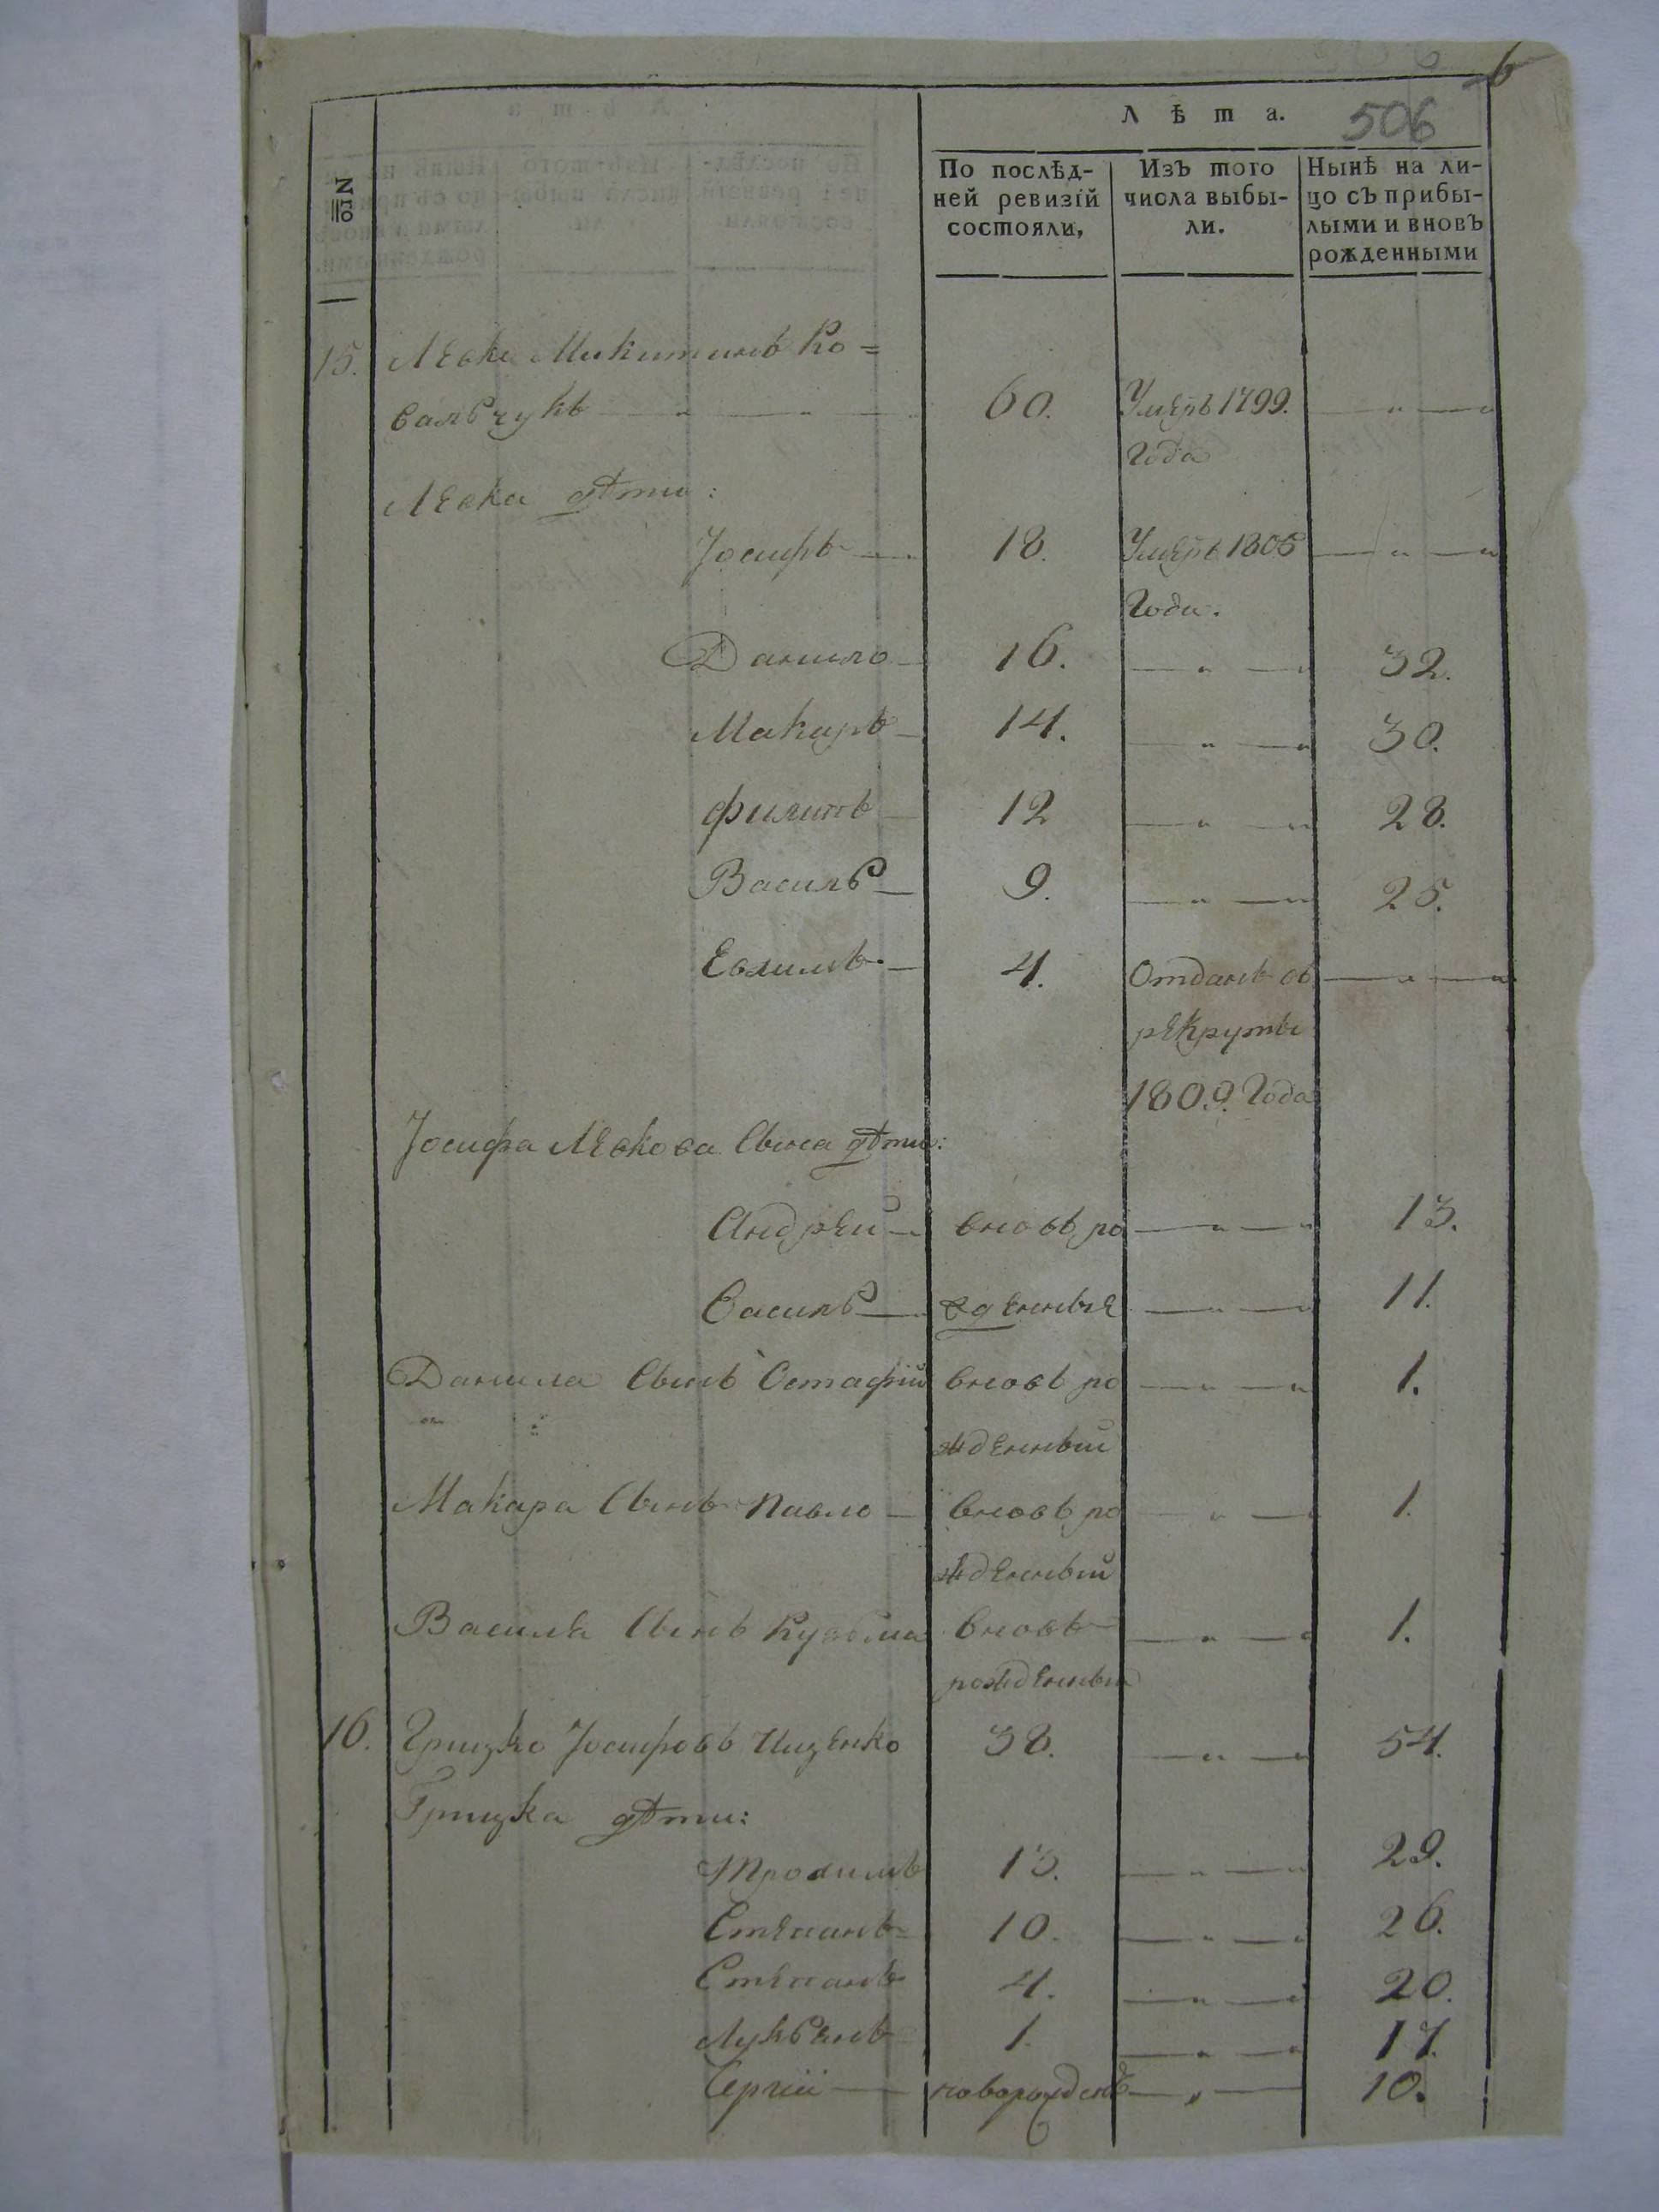 6
Л ѣ т а. 506
No
По послѣд-
ней ревизій
состояли,
Изъ того
числа выбы-
ли.
Нынѣ на ли-
цо съ прибы-
лыми и вновъ
рожденными
15. Левко Микитинъ Ко=
вальчукъ 60. Умеръ 1799.
Года
Левка дѣти:
Іосифъ 18. Умеръ 1805
Года.
Данило 16. 32.
Макаръ 14. 30.
Филипъ 12 28.
Василь 9. 25.
Евхимъ 4. Отданъ въ
рекруты
1809. Года
Іосифа Левкова Сына дѣти:
Андрей вновь ро 13.
Василь жденные 11.
Данила Сынъ Остафій вновь ро 1.
жденный
Макара Сынъ Павло вновь ро 1.
жденный
Василя Сынъ Кузьма вновь 1.
рожденный
16. Грицко Іосифовъ 38. 54.
Грицка дѣти:
Трохимъ 13. 29.
Степанъ 10. 26.
Степанъ 4. 20.
Лукьянъ 1. 17.
Сергій новорожденъ 10.